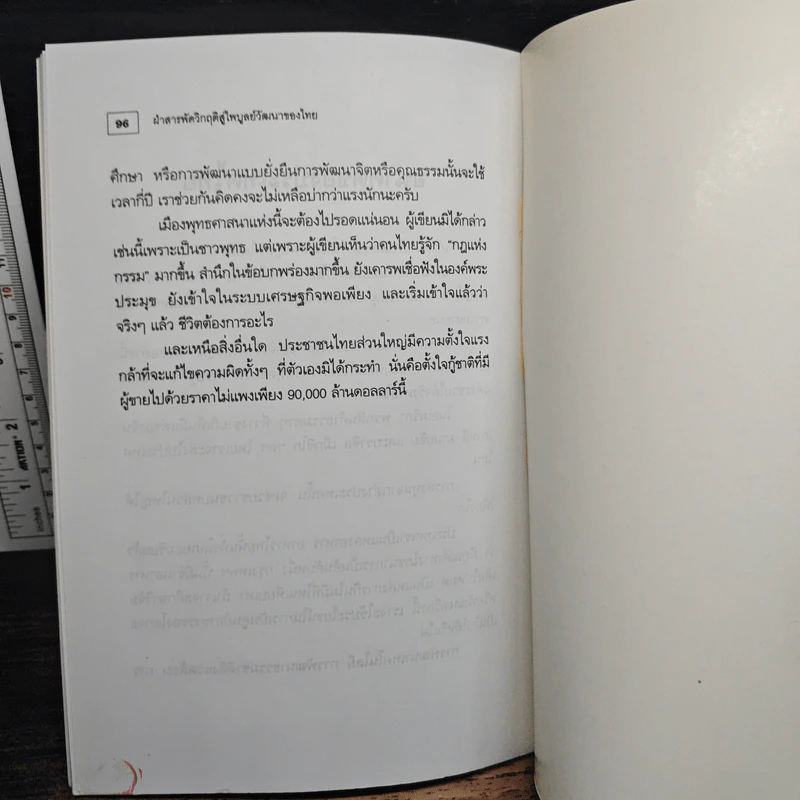 96 ฝ่าสารพัดวิกฤติสู่ไพบูลย์วัฒนาของไทย
ศึกษา หรือการพัฒนาแบบยั่งยืนการพัฒนาจิตหรือคุณธรรมนั้นจะใช้
เวลากี่ปี เราช่วยกันคิดคงจะไม่เหลือบ่ากว่าแรงนักนะครับ
เมืองพุทธศาสนาแห่งนี้จะต้องไปรอดแน่นอน ผู้เขียนมิได้กล่าว
เช่นนี้เพราะเป็นชาวพุทธ แต่เพราะผู้เขียนเห็นว่าคนไทยรู้จัก "กฎแห่ง
กรรม" มากขึ้น สำนึกในข้อบกพร่องมากขึ้น ยังเคารพเชื่อฟังในองค์พระ
ประมุข ยังเข้าใจในระบบเศรษฐกิจพอเพียง และเริ่มเข้าใจแล้วว่า
จริงๆ แล้ว ชีวิตต้องการอะไร
และเหนือสิ่งอื่นใด ประชาชนไทยส่วนใหญ่มีความตั้งใจแรง
กล้าที่จะแก้ไขความผิดทั้งๆ ที่ตัวเองมิได้กระทำ นั่นคือตั้งใจกู้ชาติที่มี
ผู้ขายไปด้วยราคาไม่แพงเพียง 90,000 ล้านดอลลาร์นี้
10
9
2
1
ACTION
inches